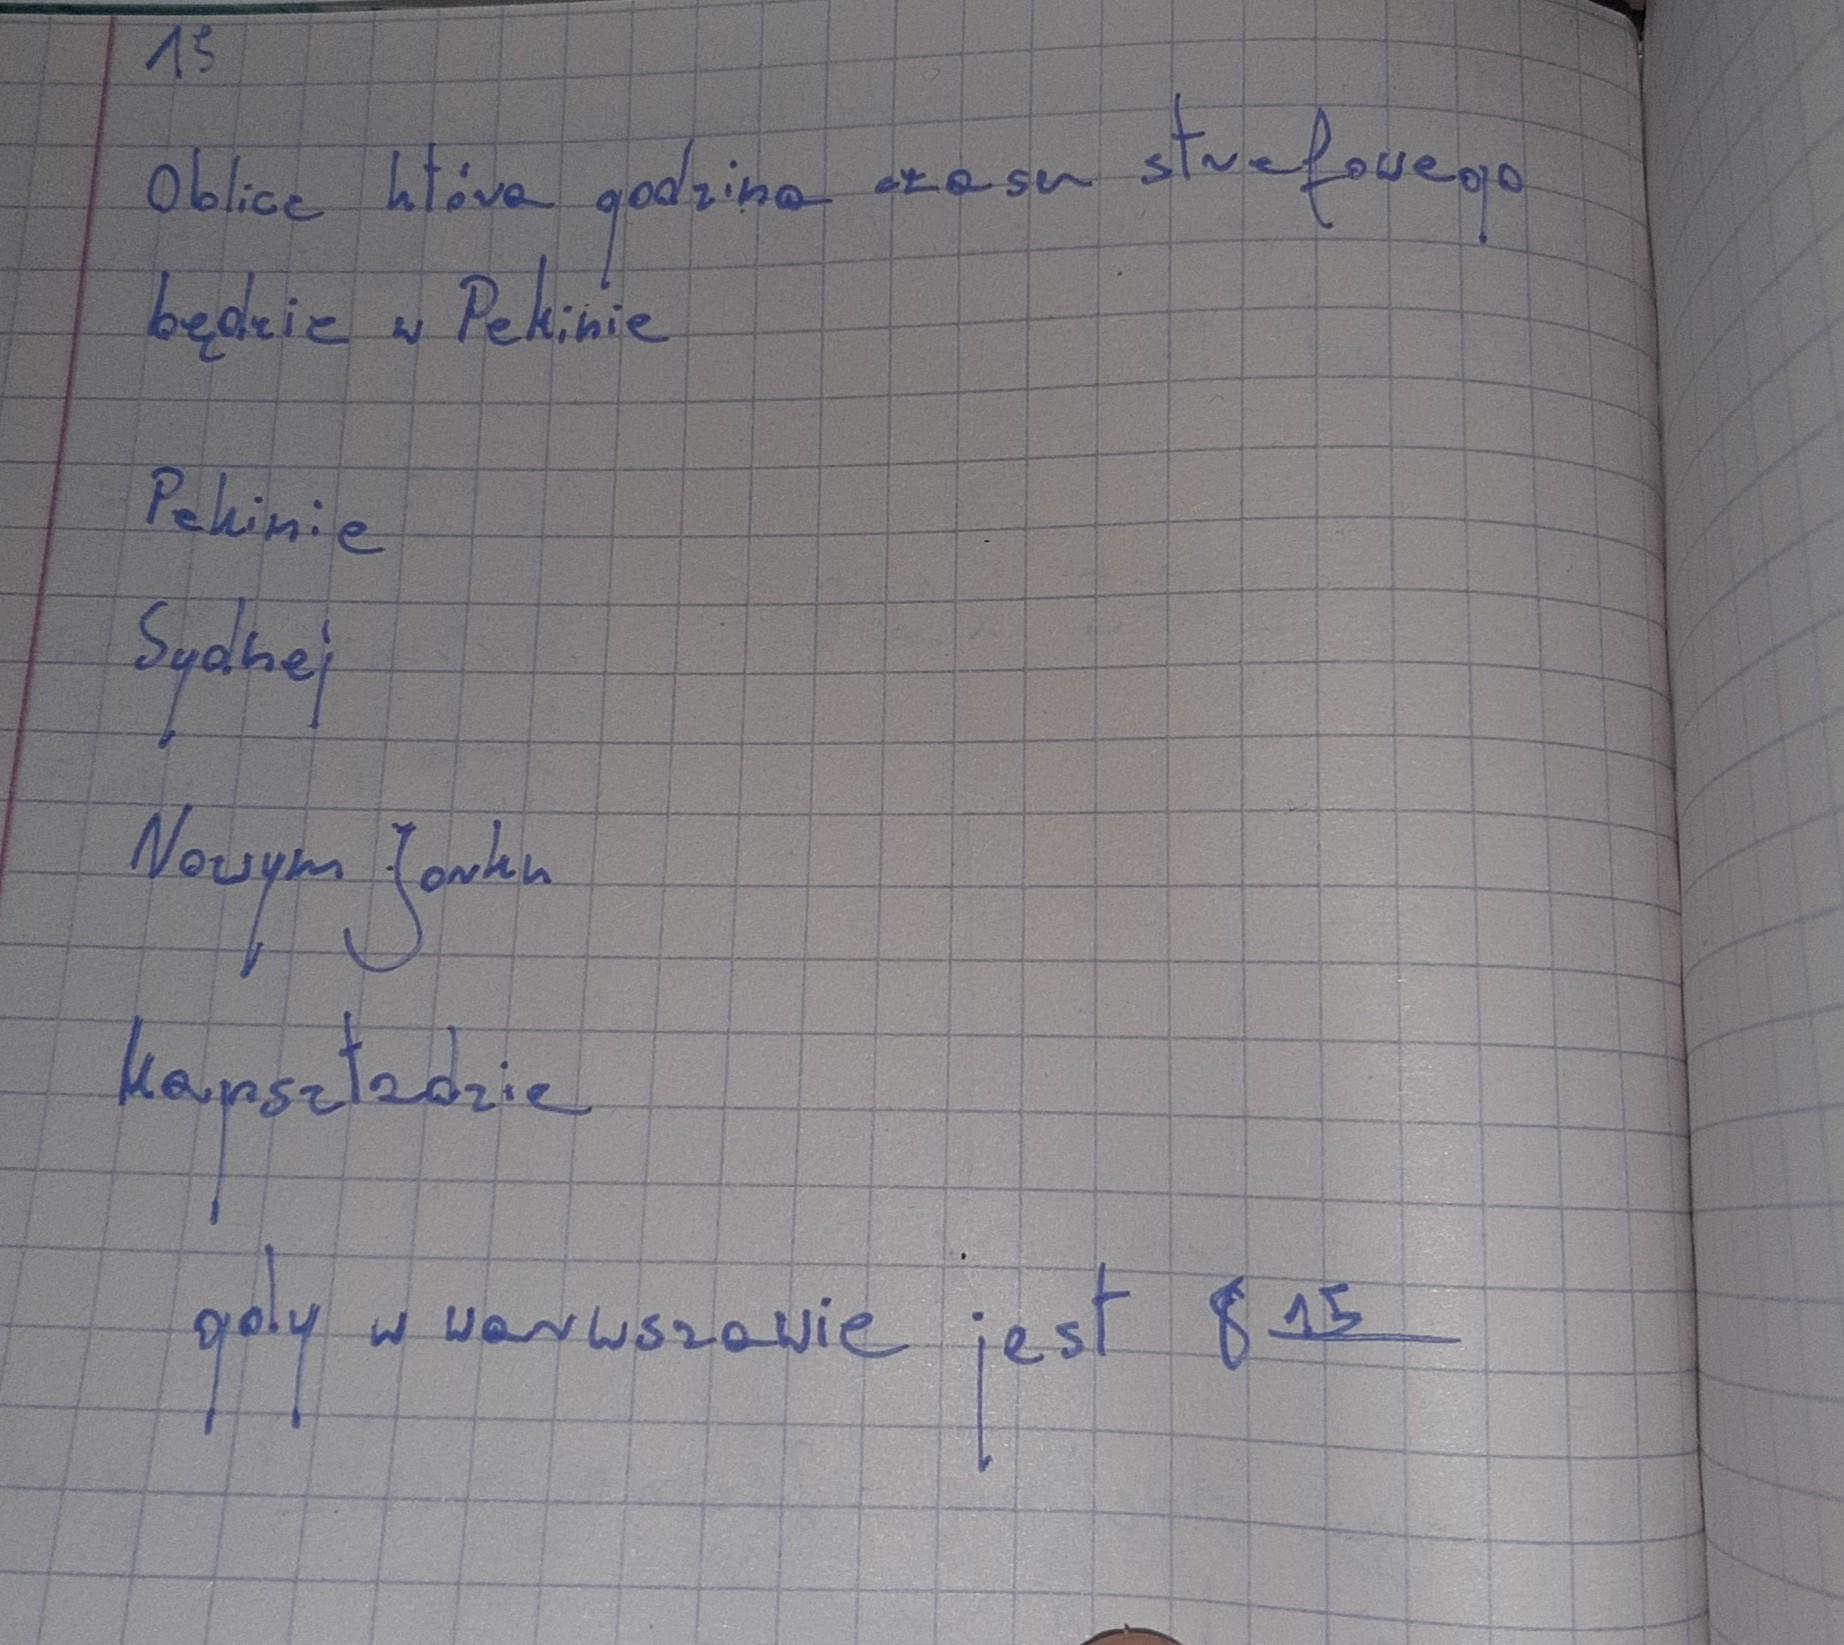 13
Oblicz która godzina czasu strefowego
będzie w Pekinie
Pekinie
Sydnej
Nowym Jorku
kapsztadzie
gdy w warwszawie jest 8 15